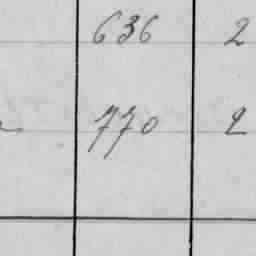 636 2
770 2